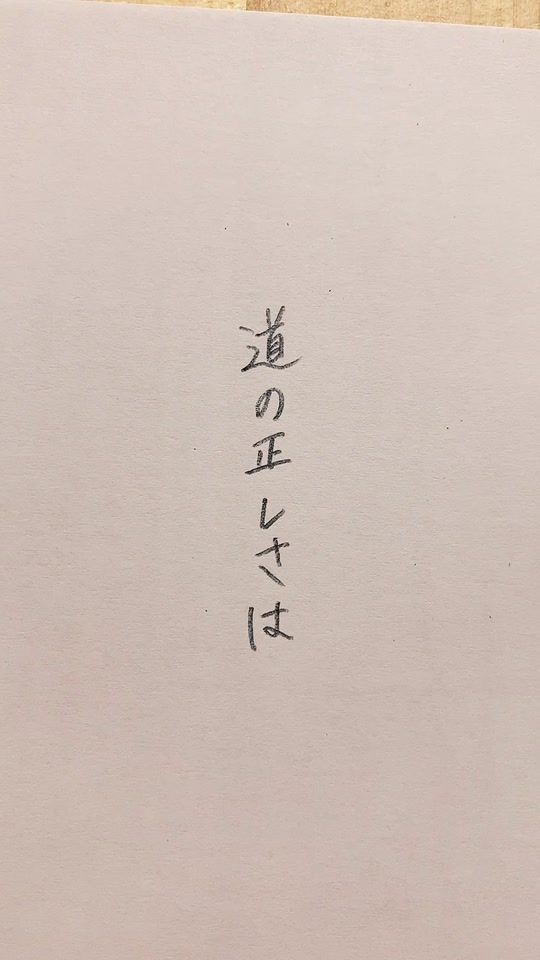 道の正しさは